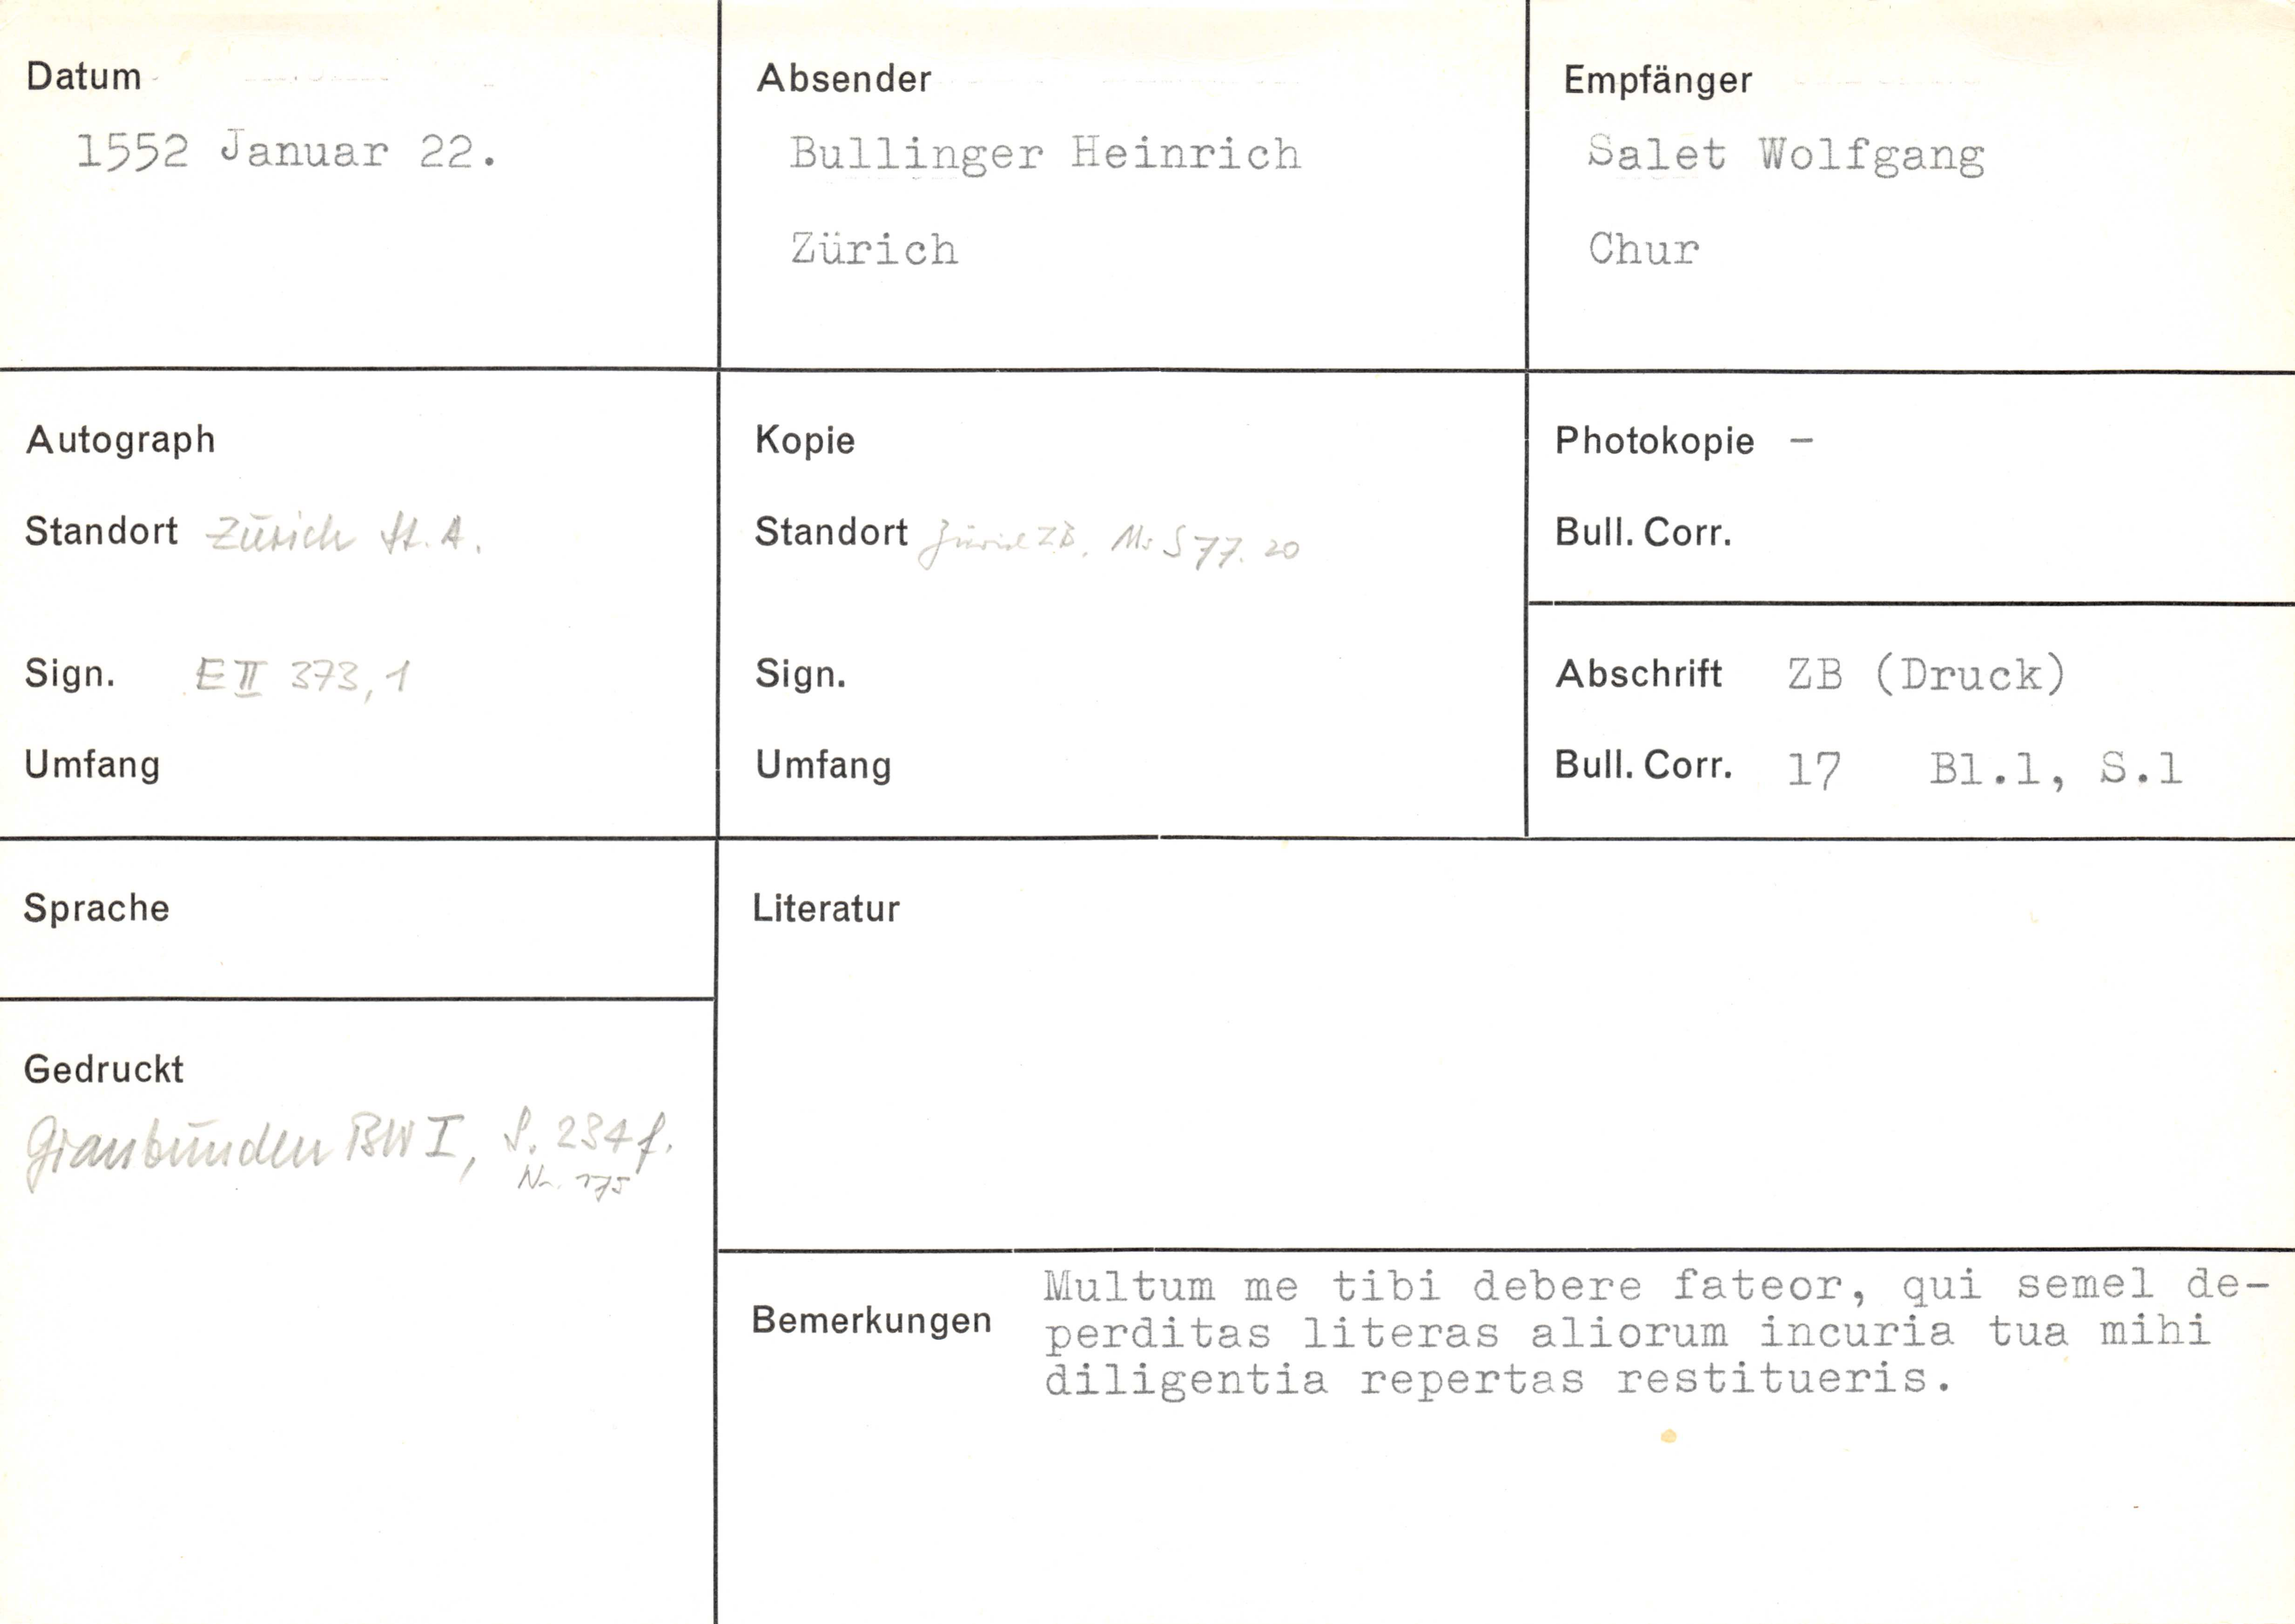 Datum
1552 Januar 22.
Absender
Bullinger Heinrich
Zürich
Empfänger
Salet Wolfgang
Chur
Autograph
Standort Zürich St. A.
Sign. E II 373,1
Umfang
Kopie
Standort Zürich ZB. Ms S 77. 20
Sign.
Umfang
Photokopie –
Bull. Corr.
Abschrift ZB (Druck)
Bull. Corr. 17 Bl.1, S.1
Sprache
Gedruckt
Graubünden BW I, S. 234 f.
Nr. 175
Literatur
Bemerkungen
Multum me tibi debere fateor, qui semel de-
perditas literas aliorum incuria tua mihi
diligentia repertas restitueris.